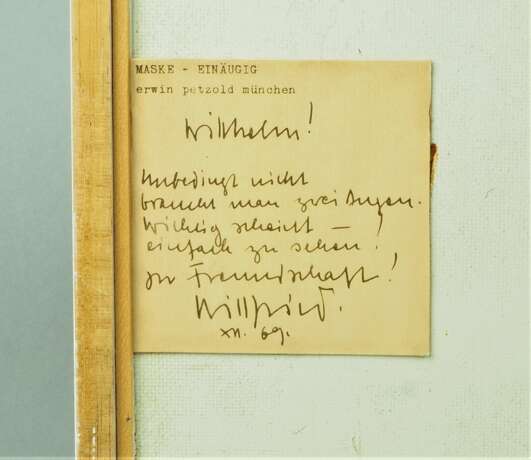 MASKE - EINÄUGIG
erwin petzold münchen
Willhelm!
Unbedingt nicht
braucht man zwei Augen.
Wichtig scheint –
einfach zu sehen!
in Freundschaft!
Willfried.
XII. 69.